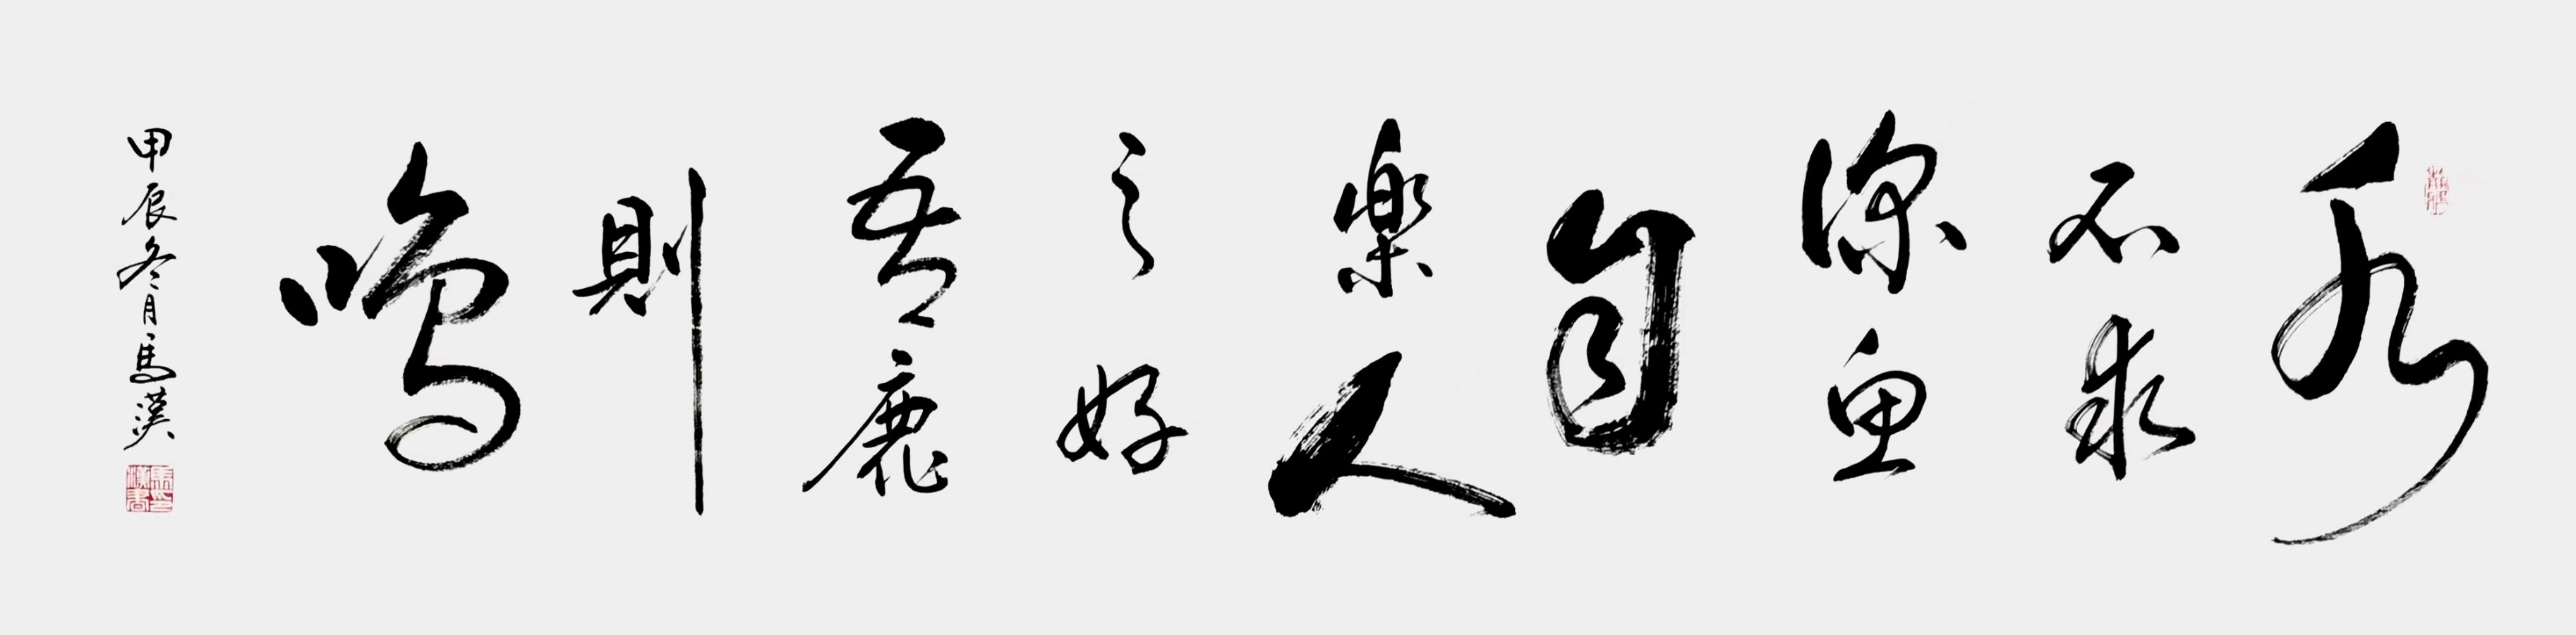 水
不求
深魚
自
樂人
之好
吾鹿
則
鳴
甲辰冬月馬漢